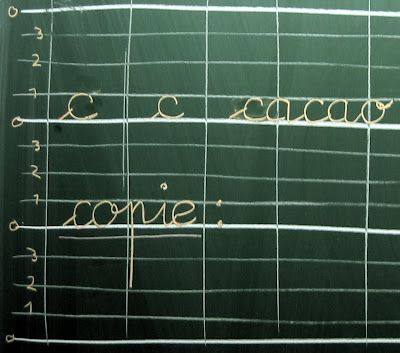 0
3
2
1
0 c c cacao
3
2
1
0 copie :
3
2
1
0